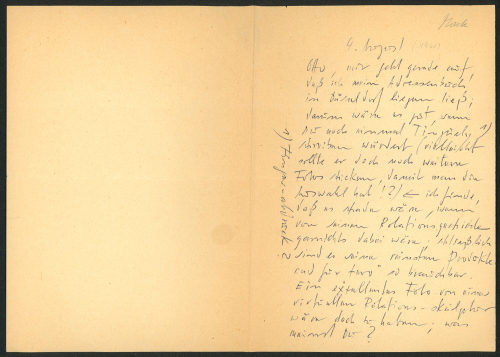 4. August
Otto, mir geht gerade auf,
daß ich mein Adressenbuch
in Düsseldorf liegen ließ,
darum wäre es gut, wenn
Du noch einmal 1)
schreiben würdest (vielleicht
sollte er doch noch weitere
Fotos schicken, damit man die
Auswahl hat!?) ← ich finde,
daß es schade wäre, wenn
von seinen
garnichts dabei wäre; schliesslich
sind es seine reinsten Produkte
und für "two" so brauchbar.
Ein exzellentes Foto von einer
virtuellen Rotations-skulptur
wäre doch zu haben; was
meinst Du?